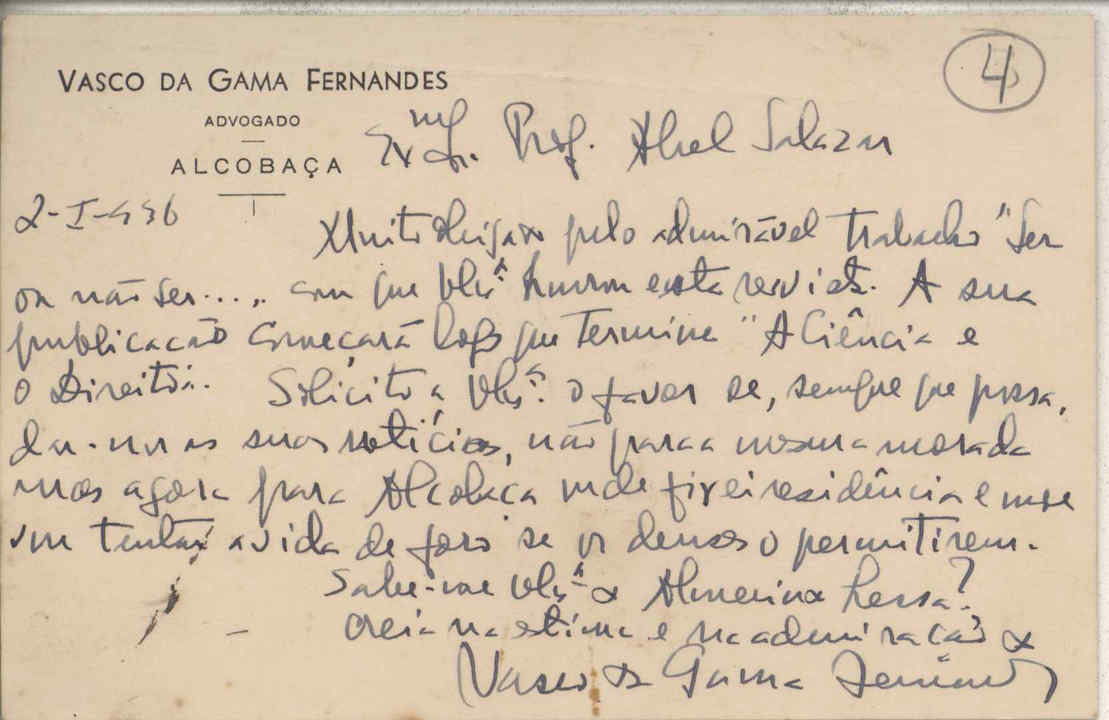 VASCO DA GAMA FERNANDES
ADVOGADO
ALCOBAÇA
4
Ex.mo Sr. Prof. Abel Salazar
2-I-936
Muito obrigado pelo admirável trabalho "Ser
ou não ser..., com que V. Ex.ª honrou esta revista. A sua
publicação começará logo que termine "A Ciência e
o Direito". Solicito a V. Ex.ª o favor de, sempre que possa,
dar-nos as suas notícias, não para a mesma morada
mas agora para Alcobaça onde fixei residência e onde
vou tentar a vida de foro se os deuses o permitirem.
Sabe-me V. Ex.ª Almerindo Lessa?
Creia na estima e na admiração
Vasco da Gama Fernandes